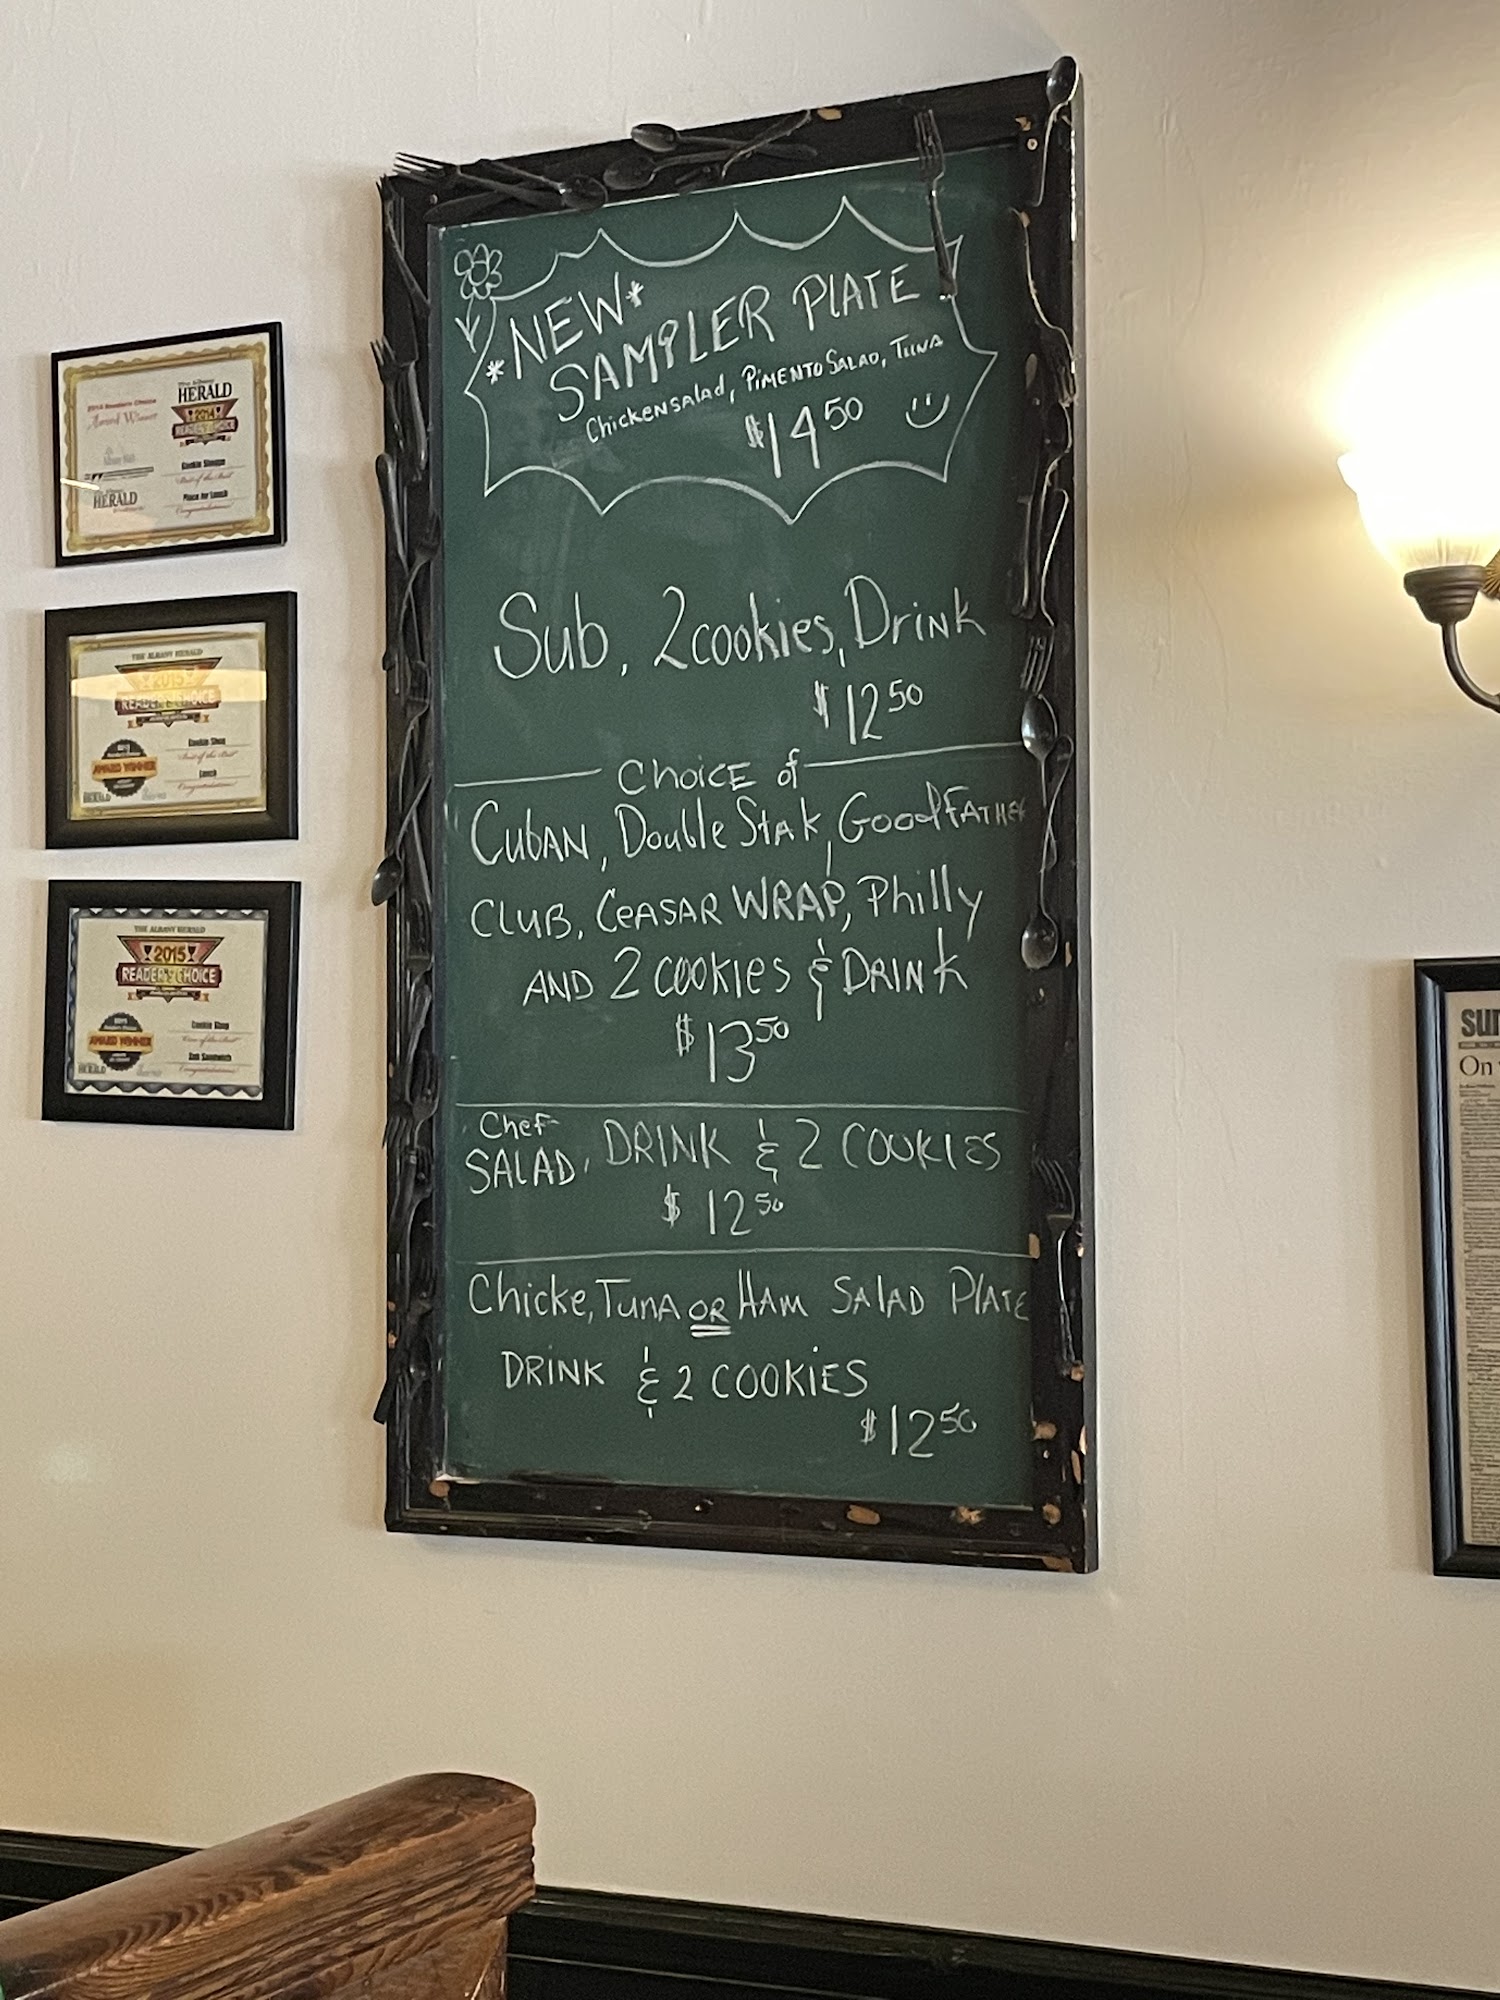 *NEW*
SAMPLER PLATE
Chickensalad, PIMENTO SALAD, TUNA
$14.50
Sub, 2 cookies, Drink
$12.50
CHOICE of
CUBAN, Double Stak, GoodFATHER
CLUB, CEASAR WRAP, Philly
AND 2 COOKIES & DRINK
$13.50
Chef
SALAD, DRINK & 2 COOKIES
$12.50
Chicke, TUNA OR HAM SALAD PLATE
DRINK & 2 COOKIES
$12.50
The Albany
HERALD
2014 Readers Choice
Award Winner
2014
READERS CHOICE
Cookie Shoppe
Best of the Best
HERALD
Place for Lunch
Congratulations!
THE ALBANY HERALD
2015
READER'S CHOICE
Cookie Shop
Best of the Best
AWARD WINNER
Lunch
HERALD
Congratulations!
THE ALBANY HERALD
2015
READER'S CHOICE
Cookie Shop
One of the Best
AWARD WINNER
Sub Sandwich
HERALD
Congratulations!
On